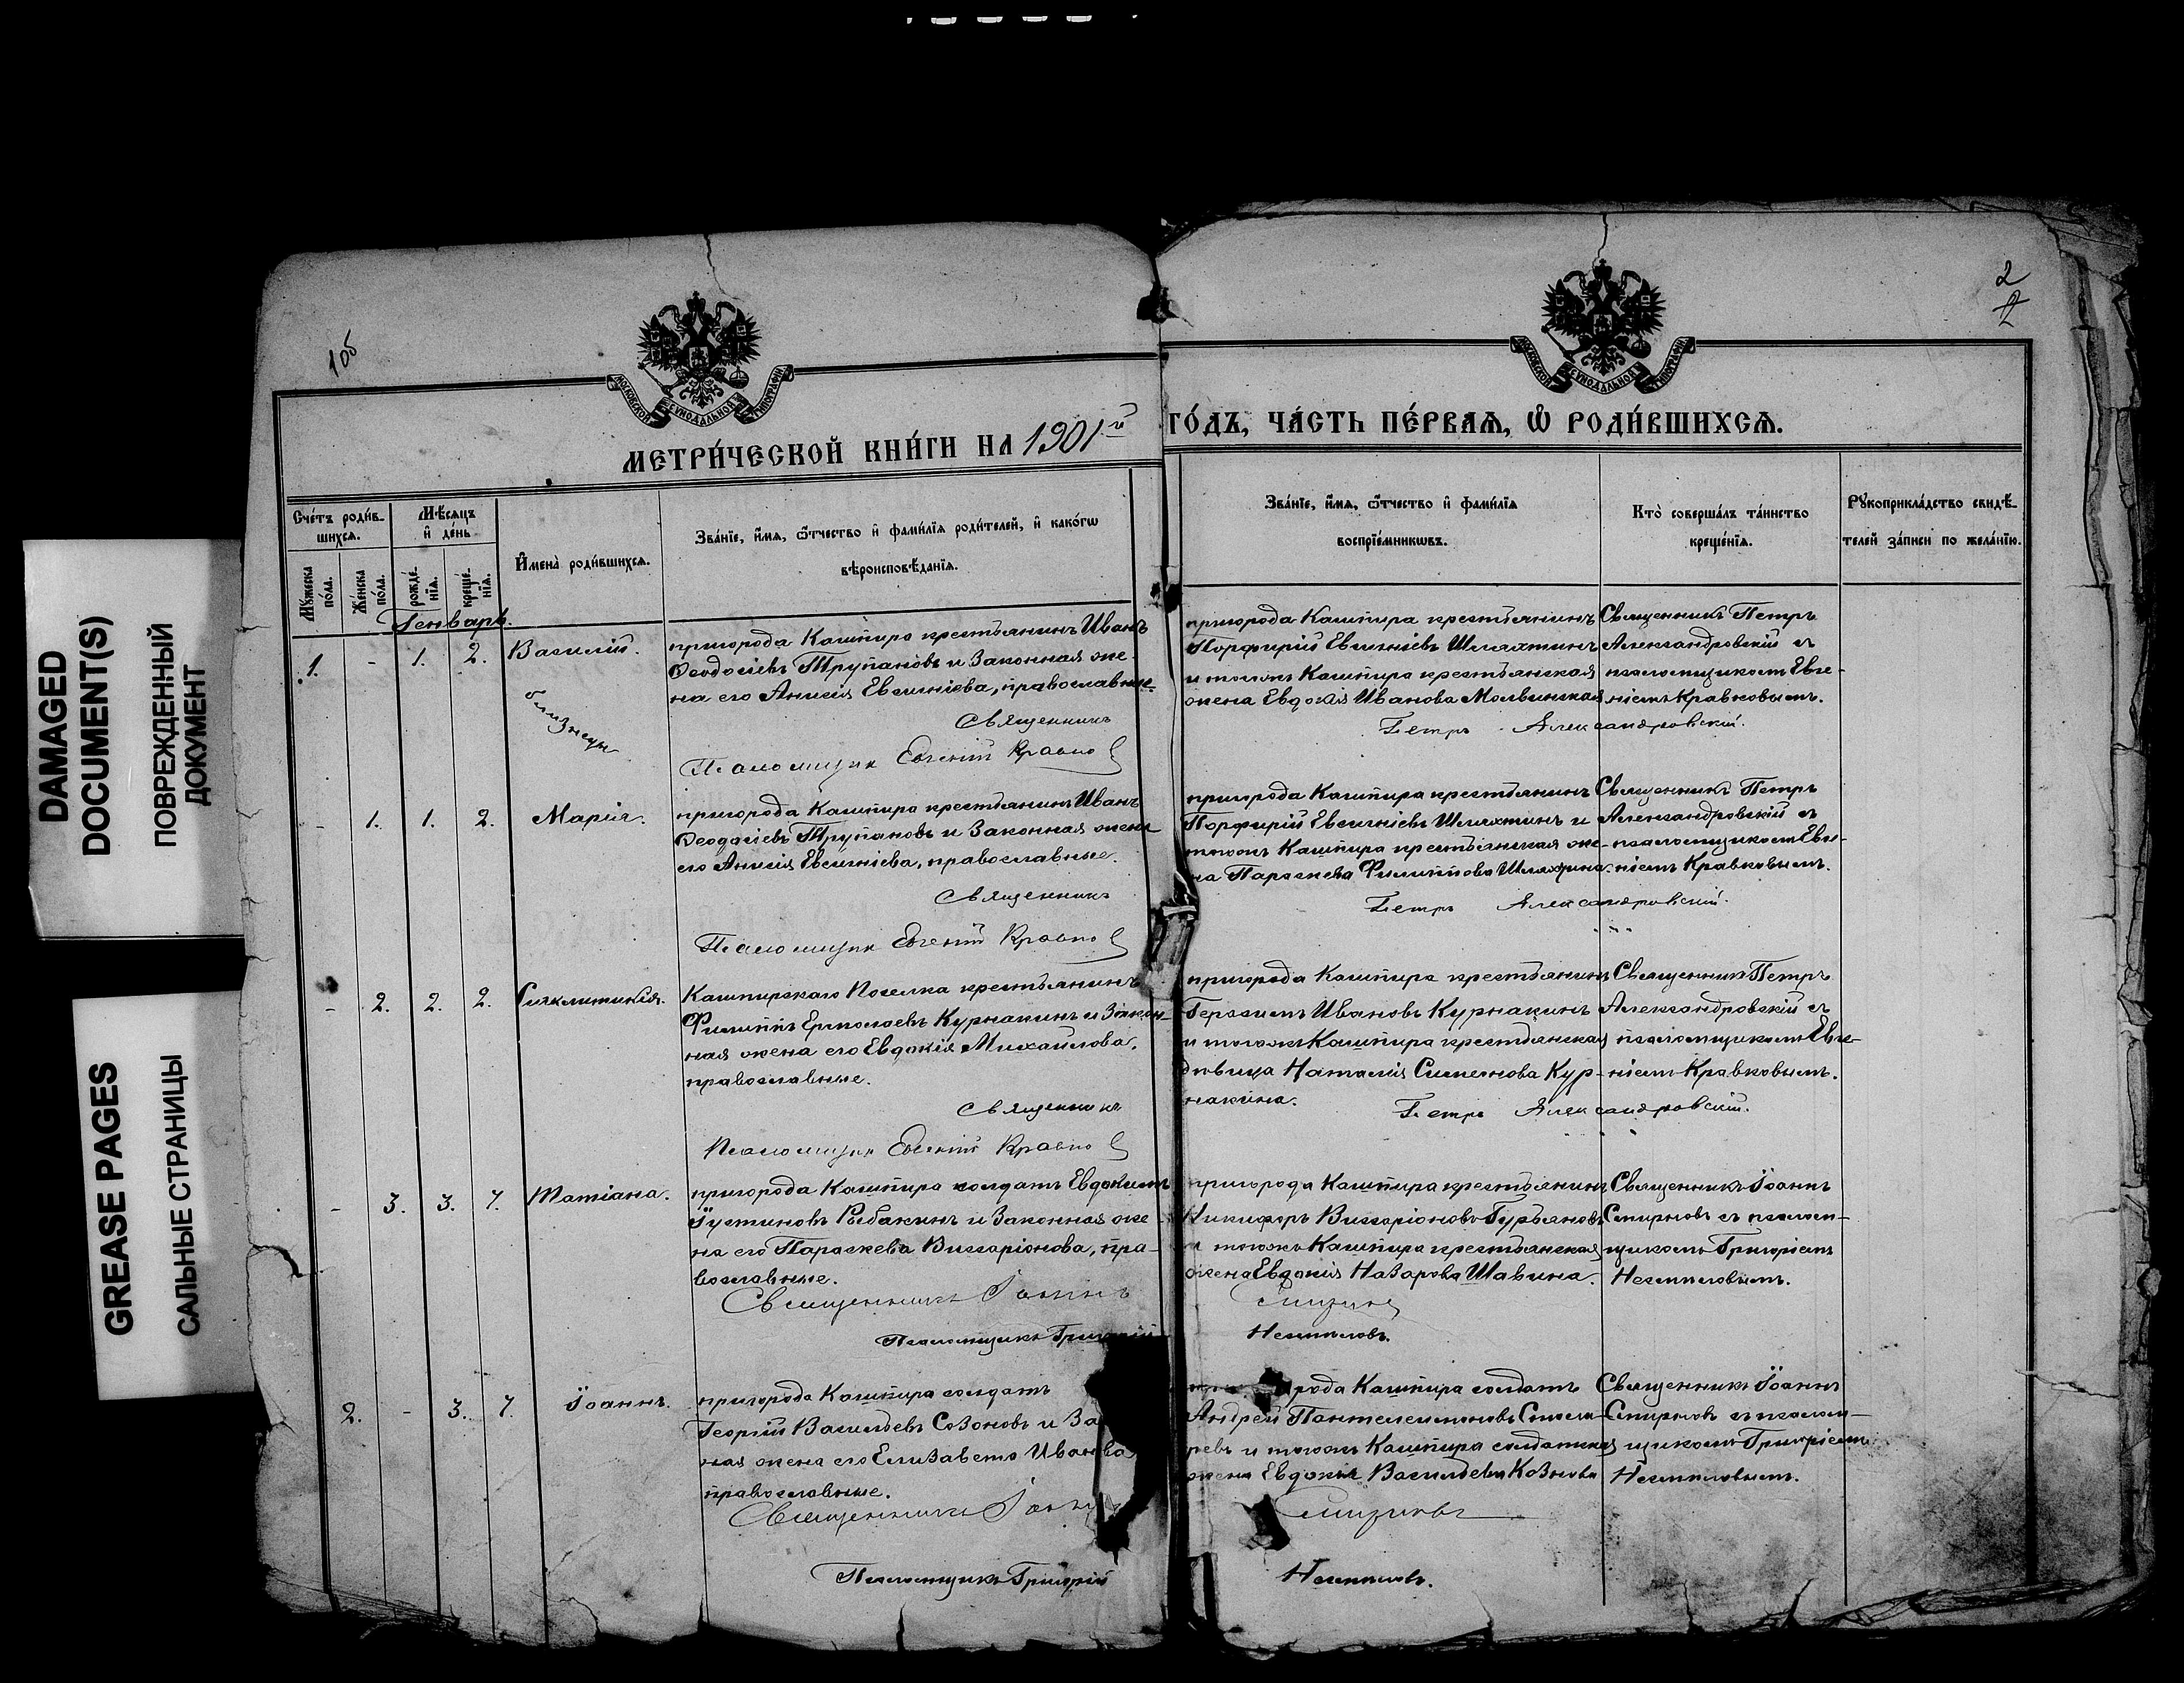 DAMAGED
DOCUMENT(S)
ПОВРЕЖДЕННЫЙ
ДОКУМЕНТ
GREASE PAGES
САЛЬНЫЕ СТРАНИЦЫ
1об
2
МОСКОВСКОЙ СУНОДАЛЬНОЙ ТИПОГРАФІИ
МОСКОВСКОЙ СУНОДАЛЬНОЙ ТИПОГРАФІИ
МЕТРИ́ЧЕСКОЙ КНИ́ГИ НА 1901й ГО́ДЪ, ЧА́СТЬ ПЕ́РВАѦ, Ѡ҆ РОДИ́ВШИХСѦ.
Сче́тъ роди́в-
шихсѧ.
Мꙋ́жеска
по́ла.
Же́нска
по́ла.
Мѣ́сѧцъ
и҆ де́нь
рожде́-
нїѧ.
креще́-
нїѧ.
И҆мена̀ роди́вшихсѧ.
Зва́нїе, и҆́мѧ, ѻ҆́тчество и҆ фами́лїѧ роди́телей, и҆ како́гѡ
вѣроисповѣ́данїѧ.
Зва́нїе, и҆́мѧ, ѻ҆́тчество и҆ фами́лїѧ
воспрїе́мникѡвъ.
Кто̀ соверша́лъ та́инство
креще́нїѧ.
Рꙋкоприкла́дство свидѣ́-
телей за́писи по жела́нїю.
Генварь.
1. - 1. 2. Василій.
близнецы
пригорода Кашпира крестьянинъ Иванъ
Ѳеодосіевъ Трупановъ и законная же-
на его Анисія Евсигніева, православные.
Священникъ
Псаломщик Евгений Кравко
пригорода Кашпира крестьянинъ
Порфирій Евсигніевъ Шляхтинъ
и тогожъ Кашпира крестьянская
жена Евдокія Иванова Молвинская
Петръ Александровский.
Священникъ Петръ
Александровскій съ
псаломщикомъ Евге-
ніемъ Кравковымъ.
- 1. 1. 2. Марія.
пригорода Кашпира крестьянинъ Иванъ
Ѳеодосіевъ Трупановъ и законная жена
его Анисія Евсигніева, православные.
Священникъ
Псаломщик Евгений Кравко
пригорода Кашпира крестьянинъ
Порфирій Евсигніевъ Шляхтинъ и
тогожъ Кашпира крестьянская же-
на Параскева Филиппова Шляхтина.
Петръ Александровский.
Священникъ Петръ
Александровскій съ
псаломщикомъ Евге-
ніемъ Кравковымъ.
- 2. 2. 2. Сигклитикія.
Кашпирскаго Поселка крестьянинъ
Филиппъ Ермолаевъ Курнакинъ и закон-
ная жена его Евдокія Михайлова,
православные.
Священникъ
Псаломщик Евгений Кравко
пригорода Кашпира крестьянинъ
Герасимъ Ивановъ Курнакинъ
и тогожъ Кашпира крестьянская
дѣвица Наталія Симеонова Кур-
накина.
Петръ Александровский.
Священникъ Петръ
Александровскій съ
псаломщикомъ Евге-
ніемъ Кравковымъ.
- 3. 3. 7. Татіана.
пригорода Кашпира солдатъ Евдокимъ
Іустиновъ Рыбакинъ и законная же-
на его Параскева Виссаріонова, пра-
вославные.
Священникъ Іоаннъ
Псаломщикъ Григорій
пригорода Кашпира крестьянинъ
Никифоръ Виссаріоновъ Гурьяновъ
и тогожъ Кашпира крестьянская
жена Евдокія Назарова Шавина.
Смирнов
Несмеловъ.
Священникъ Іоаннъ
Смирновъ съ псалом-
щикомъ Григоріемъ
Несмеловымъ.
2. - 3. 7. Іоаннъ.
пригорода Кашпира солдатъ
Георгій Васильевъ Созоновъ и За
ная жена его Елизавета Иванова
православные.
Священникъ Іоанн
Псаломщикъ Григорій
рода Кашпира солдатъ
Андрей Пантелеимоновъ Столя-
ревъ и тогожъ Кашпира солдатская
жена Евдокія Васильева
Смирновъ
Несмеловъ.
Священникъ Іоаннъ
Смирновъ съ псалом-
щикомъ Григоріемъ
Несмеловымъ.